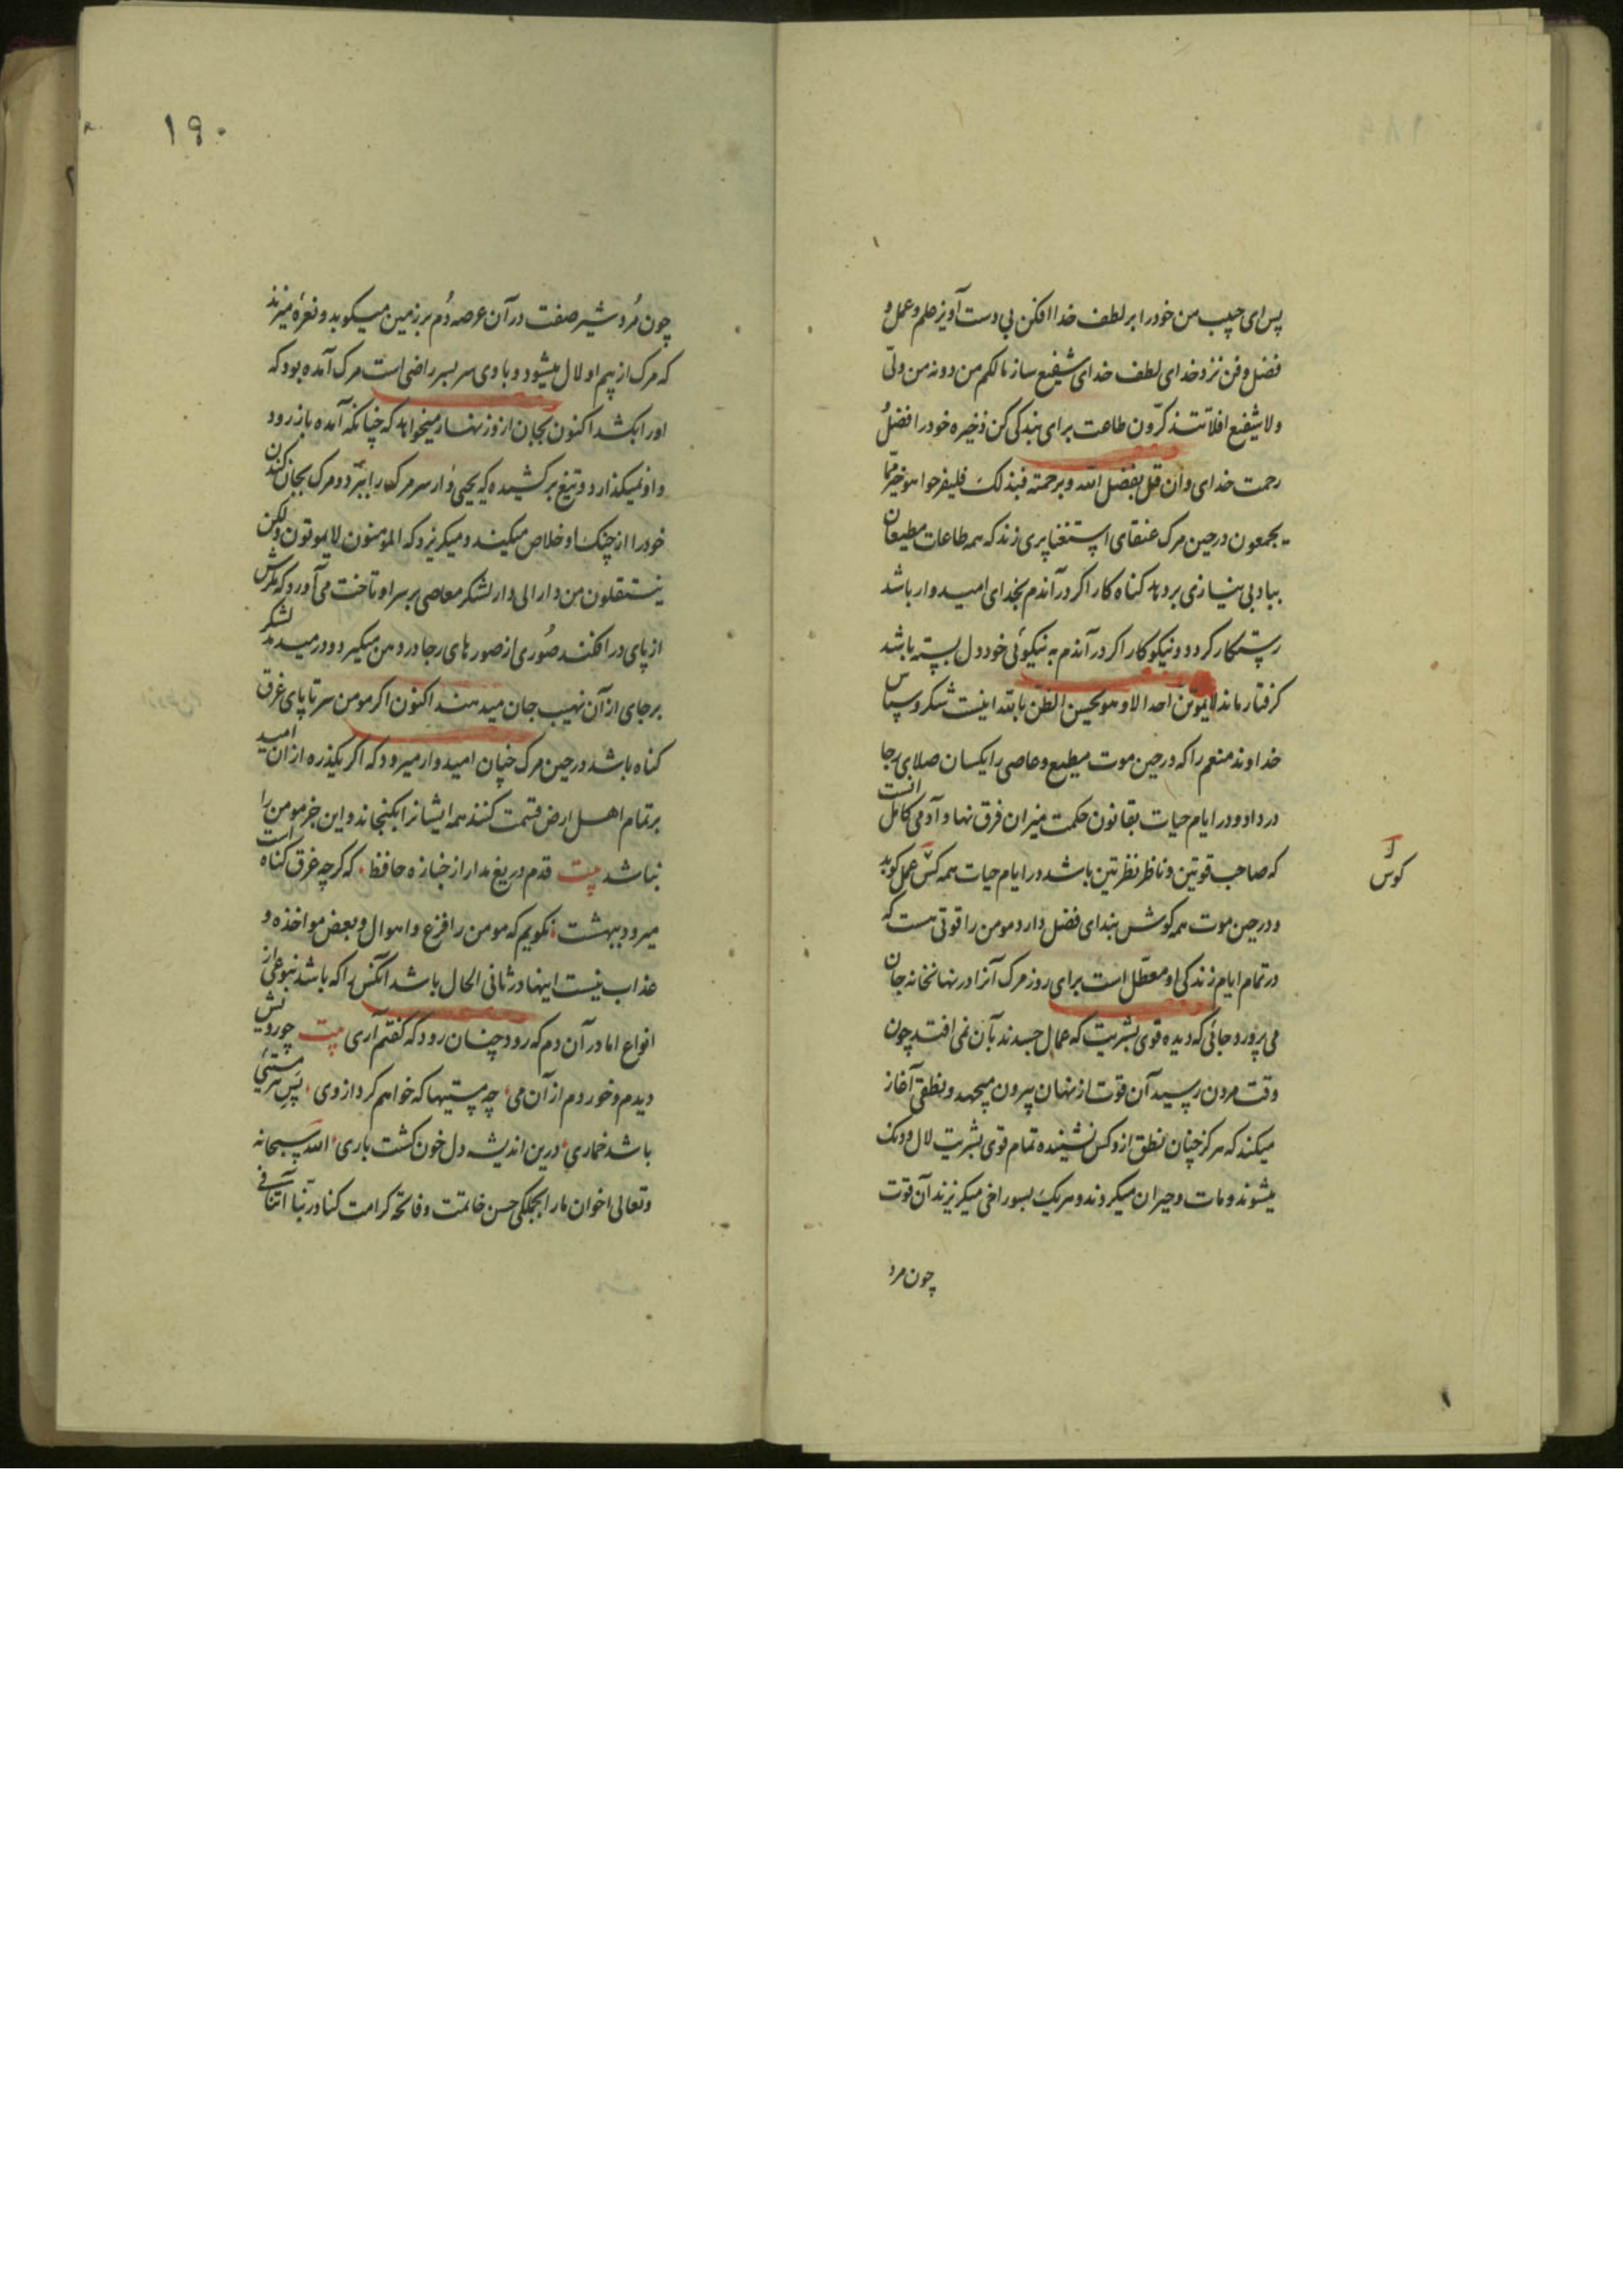 پس ای حبیب من خود را بر لطف خدا افکن بی دست آویز علم و عمل و
فضل و فن نزد خدای لطف خدای شفیع ساز مالکم من دونه من ولیّ
ولا شفیع افلا تتذکّرون طاعت برای بندکی کن ذخیره خود را فضل
رحمت خدای دان قل بفضل الله و برحمته فبذلک فلیفرحوا هو خیر ممّا
یجمعون در حین مرک عنقای استغنا پری زند که همه طاعات مطیعان
بباد بی نیازی بر دهد کناه کار اکر در آندم بخدای امیدوار باشد
رستکار کردد و نیکوکار اکر در آندم به نیکوئی خود دل بسته باشد
کرفتار ماند لا یموتن احدا الا و هو یحسن الظن بالله اینست شکر و سپاس
خداوند منعم را که در حین موت مطیع و عاصی را یکسان صلای رجا
در داد و در ایام حیات بقانون حکمت میزان فرق نهاد آدمی کامل آنست
که صاحب قوتین و ناظر نظرتین باشد در ایام حیات همه کس عمل کوید
و در حین موت همه کوش بندای فضل دارد مومن را قوتی هست که
در تمام ایام زندکی او معطّل است برای روز مرک آنرا در نهانخانه جان
می پرورد جائی که دیده قوی بشریت که عمال جسدند بآن نمی افتد چون
وقت مردن رسید آن قوت از نهان بیرون میجهد و نطقی آغاز
میکند که هرکز چنان نطق از و کس نشینده تمام قوی بشریت لال و دنک
میشوند و مات و حیران میکردند و هر یک بسوراخی میکریزند آن قوت
چون مرد
کوس
۱۹۰
چون مُرد شیر صفت در آن عرصه دُم بر زمین میکوبد و نعره میزند
که مرک از بیم او لال میشود و با وی سر بسر راضی است مرک آمده بود که
او را بکشد اکنون بجان از و زنهار میخواهد که چنانکه آمده باز رود
و او نمیکذارد و تیغ بر کشیده که یحیی وار سر مرک را ببرّد و مرک بجان کندن
خود را از چنک او خلاص میکند و میکریزد که المؤمنون لا یموتون ولکن
ینتقلون من دار الی دار لشکر معاصی بر سر او تاخت می آورد که مکرش
از پای در افکند صُوری از صورهای رجا در دهن میکیرد و در میدمد لشکر
بر جای از آن نهیب جان میدهند اکنون اکر مومن سر تا پای غرق
کناه باشد در حین مرک چنان امیدوار میرود که اکر یکذره از ان امید
بر تمام اهل ارض قسمت کنند همه ایشانرا بکنجاند و این جز مومن را
نباشد بیت قدم دریغ مدار از جنازه حافظ که کرچه غرق کناه است
میرود ببهشت نکویم که مومن را فزع و اهوال و بعض مواخذه و
عذاب نیست اینها در ثانی الحال باشد آنکس را که باشد بنوعی از
انواع اما در آن دم که رود چنان رود که کفتم آری بیت چو رویش
دیدم و خوردم از آن می چه مستیها که خواهم کرد از وی پس هر مستیی
باشد خماری درین اندیشه دل خون کشت باری الله سبحانه
و تعالی اخوان ما را بجملکی حسن خاتمت و فاتحه کرامت کناد ربنا آتنا فی